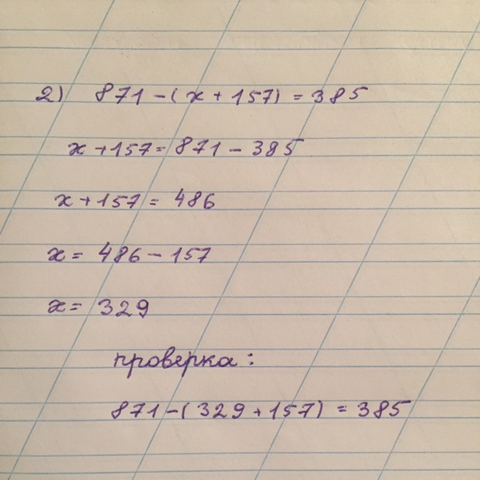 2) 871 - (x + 157) = 385
x + 157 = 871 - 385
x + 157 = 486
x = 486 - 157
x = 329
проверка:
871 - (329 + 157) = 385